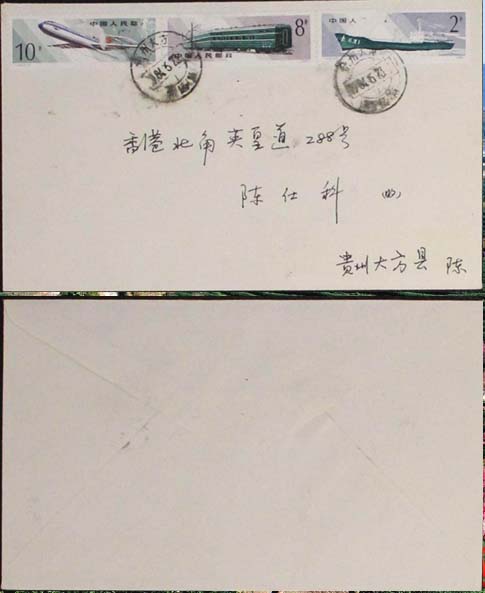 中国人民邮政
10
中国人民邮政
8
中国人
2
香港北角英皇道288号
陈仕科
贵州大方县 陈